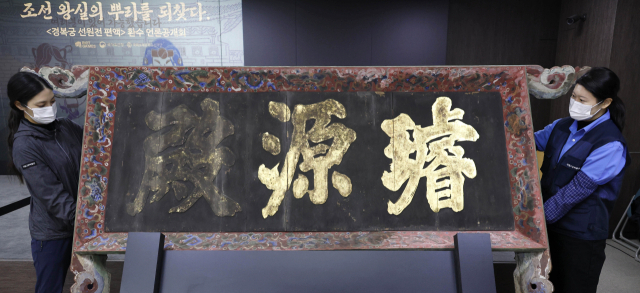 조선 왕실의 뿌리를 되찾다.
<경복궁 선원전 편액> 환수 언론공개회
殿源璿